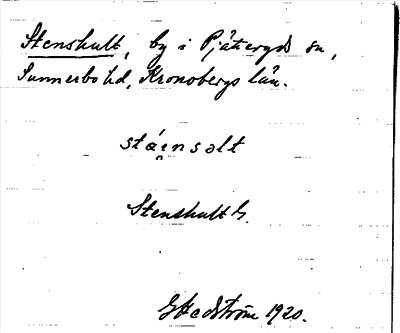 Stenshult, by i Pjätteryds sn,
Sunnerbo hd, Kronobergs län.
stáensolt
Stenshult G.
G Hedström 1920.